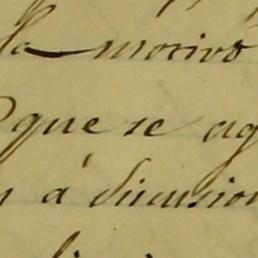 la motivo
que se ag
á discusion